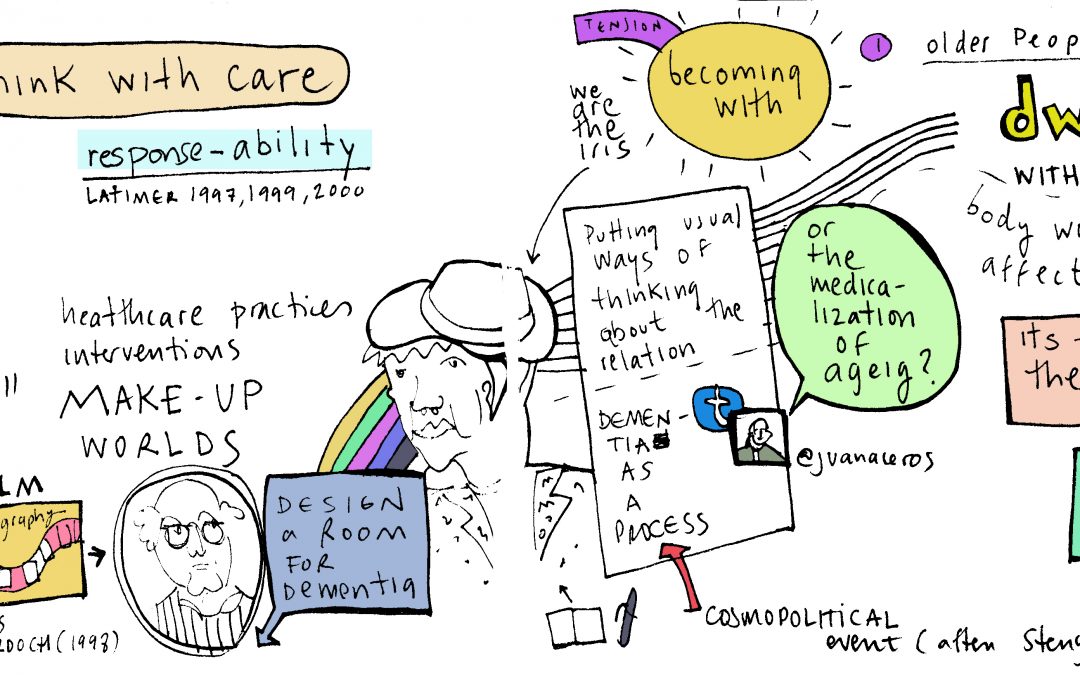 hink with care
response-ability
LATIMER 1997, 1999, 2000
healthcare practices
interventions
MAKE-UP
WORLDS
"
LM
ography
DOCH (1998)
DESIGN
a ROOM
FOR
Dementia
TENSION
becoming
with
we
are
the
iris
Putting usual
ways of
thinking
about the
relation
DEMEN-
TIA
AS
A
PROCESS
t
or
the
medica-
lization
of
ageig?
@juanaceros
COSMOPOLITICAL
event (aften Steng
1
older Peop
dw
WITH
body w
affect
its
the